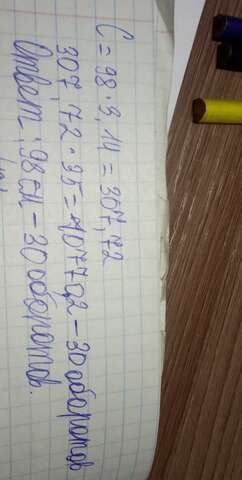 C = 98 · 3,14 = 307,72
307,72 · 35 = 10770,2 – 30 оборотов
Ответ: 98 см – 30 оборотов.